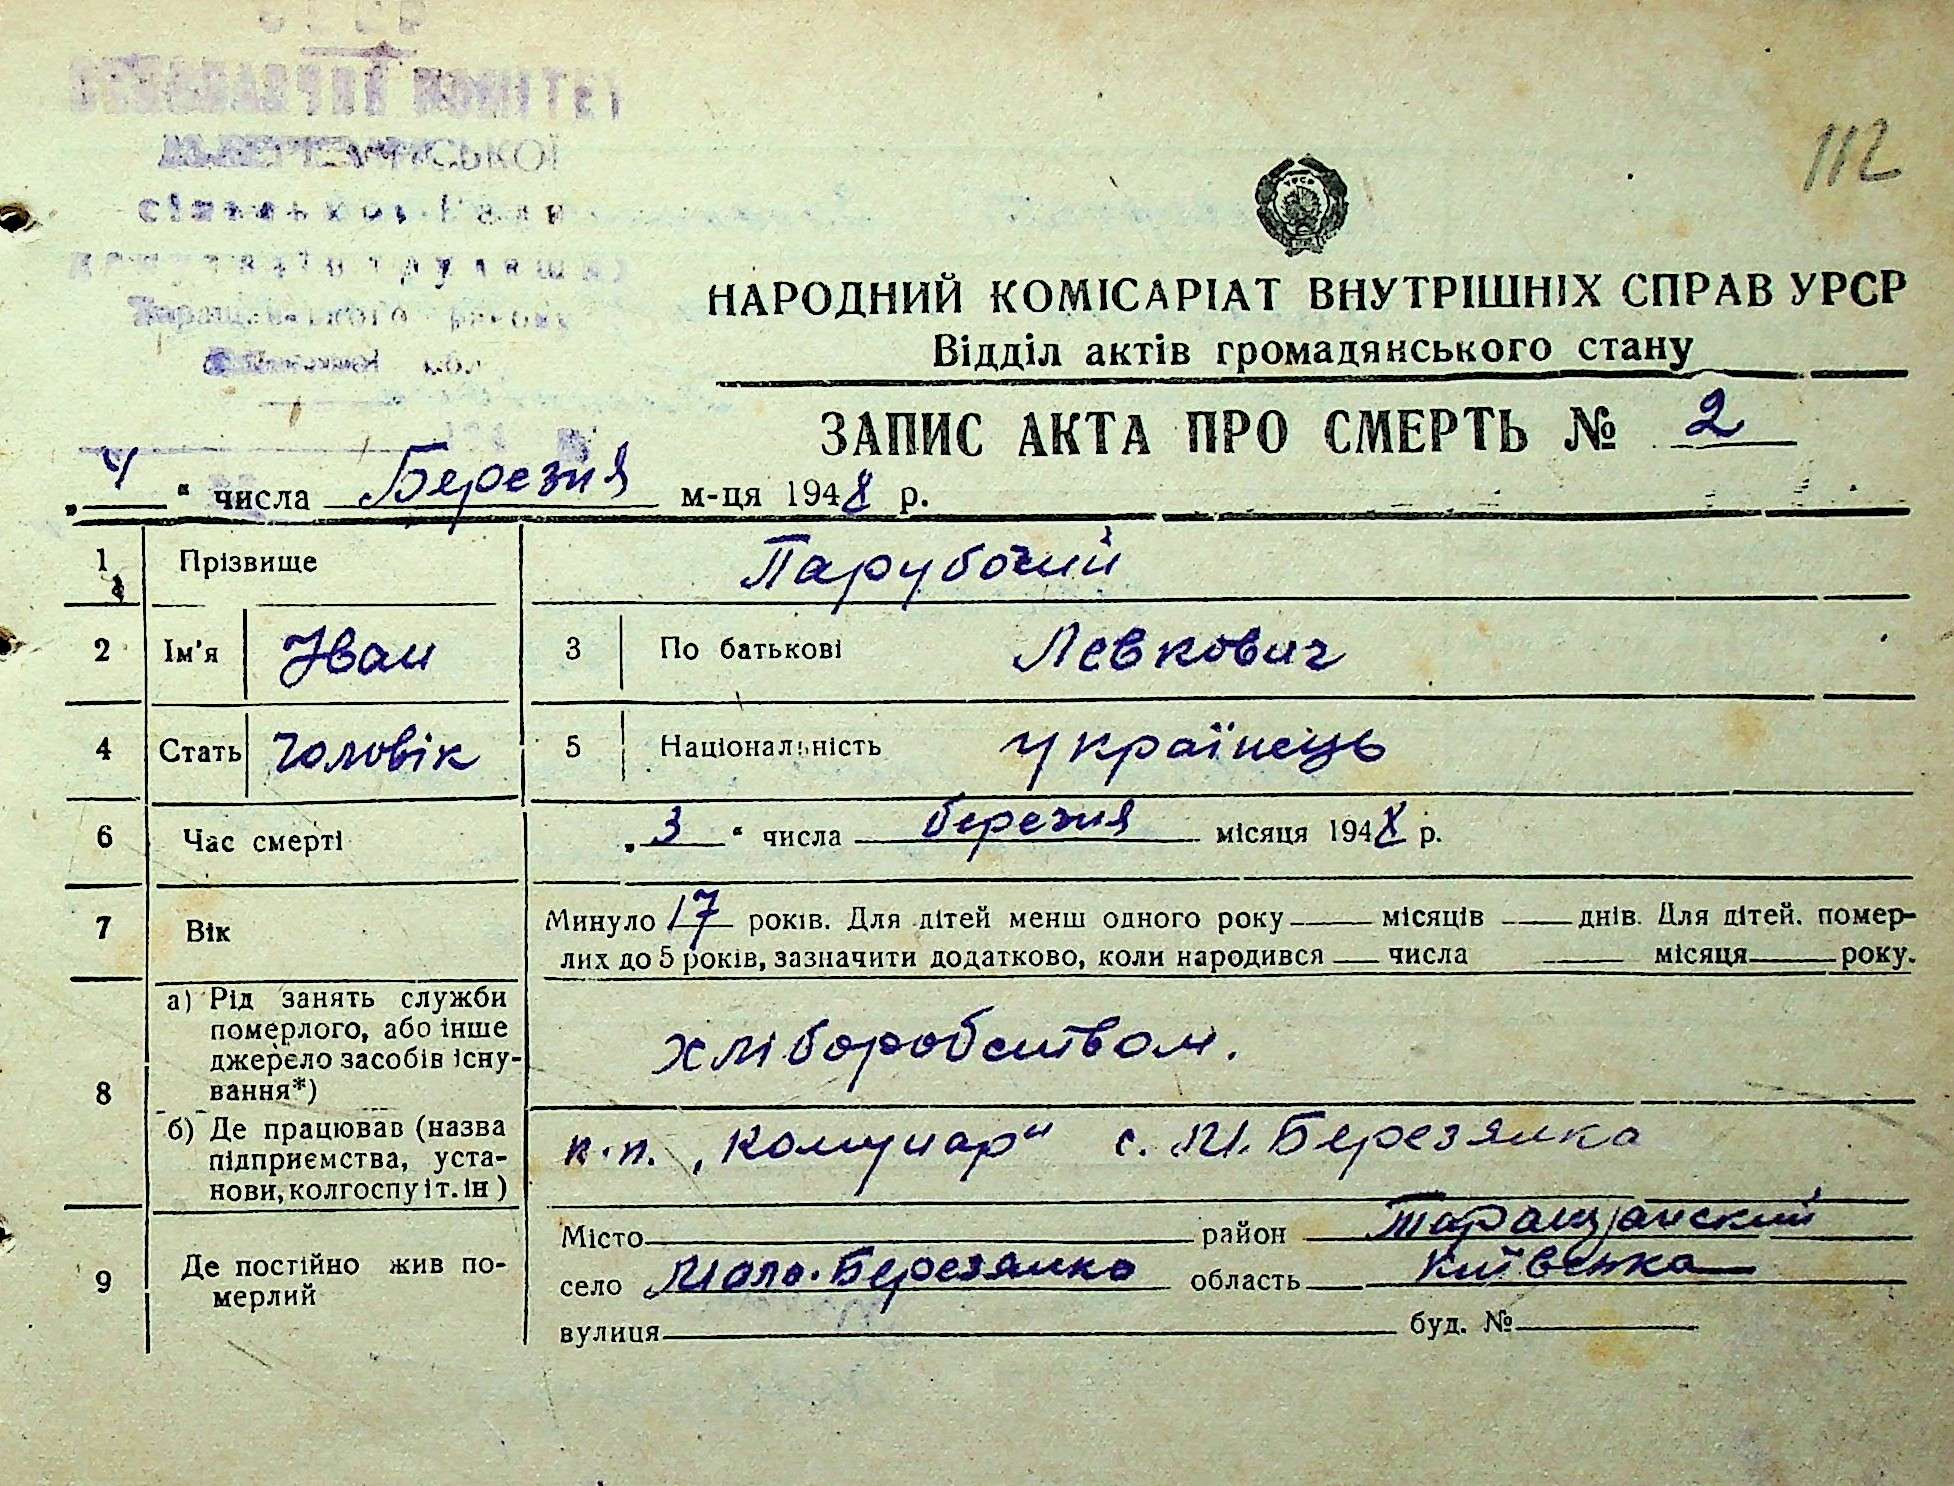 КОМІТЕТ
112
УРСР
НАРОДНИЙ КОМІСАРІАТ ВНУТРІШНІХ СПРАВ УРСР
Відділ актів громадянського стану
ЗАПИС АКТА ПРО СМЕРТЬ № 2
„4“ числа Березня м-ця 1948 р.
1 Прізвище Парубочий
2 Ім'я Іван 3 По батькові Левкович
4 Стать Чоловік 5 Національність українець
6 Час смерті „3“ числа березня місяця 1948 р.
7 Вік Минуло 17 років. Для дітей менш одного року — місяців — днів. Для дітей, помер-
лих до 5 років, зазначити додатково, коли народився — числа — місяця — року.
8 а) Рід занять служби
померлого, або інше
джерело засобів існу-
вання*)
хліборобством.
б) Де працював (назва
підприємства, уста-
нови, колгоспу і т. ін)
к.п. „Комунар" с. М. Березянка
9 Де постійно жив по-
мерлий
Місто район Таращанский
село Мало-Березянка область Київська
вулиця буд. №